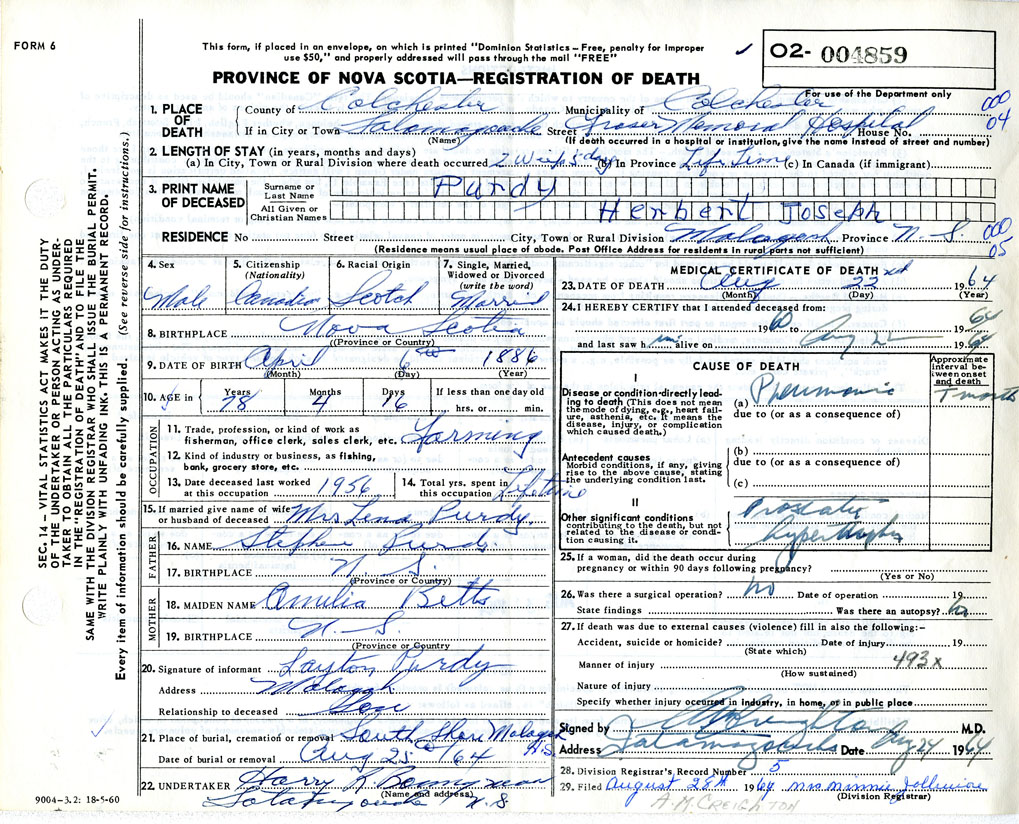 FORM 6
This form, if placed in an envelope, on which is printed "Dominion Statistics – Free, penalty for improper
use $50," and properly addressed will pass through the mail "FREE"
✓ O2- 004859
PROVINCE OF NOVA SCOTIA—REGISTRATION OF DEATH
For use of the Department only
000
04
1. PLACE OF DEATH { County of Colchester Municipality of Colchester
If in City or Town Street Fraser Memorial Hospital House No.
(Name) (If death occurred in a hospital or institution, give the name instead of street and number)
2. LENGTH OF STAY (in years, months and days)
(a) In City, Town or Rural Division where death occurred 2 (b) In Province Life Time (c) In Canada (if immigrant)
3. PRINT NAME OF DECEASED
Surname or Last Name Purdy
All Given or Christian Names Herbert Joseph
RESIDENCE No Street City, Town or Rural Division Malagash Province N. S.
000
05
(Residence means usual place of abode. Post Office Address for residents in rural parts not sufficient)
4. Sex Male
5. Citizenship (Nationality) Canadian
6. Racial Origin Scotch
7. Single, Married, Widowed or Divorced (write the word) Married
8. BIRTHPLACE Nova Scotia
(Province or Country)
9. DATE OF BIRTH April 6th 1886
(Month) (Day) (Year)
10. AGE in Years 78 Months 4 Days 16 If less than one day old
hrs. or min.
OCCUPATION
11. Trade, profession, or kind of work as
fisherman, office clerk, sales clerk, etc. Farming
12. Kind of industry or business, as fishing,
bank, grocery store, etc.
13. Date deceased last worked
at this occupation 1956
14. Total yrs. spent in
this occupation Lifetime
15. If married give name of wife
or husband of deceased Mrs Lena Purdy
FATHER
16. NAME Stephen Purdy
17. BIRTHPLACE N. S.
(Province or Country)
MOTHER
18. MAIDEN NAME Amelia Betts
19. BIRTHPLACE N. S.
(Province or Country)
20. Signature of informant Layton Purdy
Address Malagash
Relationship to deceased Son
21. Place of burial, cremation or removal South Shore Malagash N.S.
Date of burial or removal Aug 25th 64
22. UNDERTAKER Harry R
(Name and address)
N. S
9004–3.2: 18-5-60
MEDICAL CERTIFICATE OF DEATH
23. DATE OF DEATH Aug 22 nd 1964
(Month) (Day) (Year)
24. I HEREBY CERTIFY that I attended deceased from: 64
1960 to Aug 22 19
and last saw him alive on 1964
CAUSE OF DEATH
Approximate interval between onset and death
I
Disease or condition directly leading to death (This does not mean
the mode of dying, e.g., heart failure, asthenia, etc. It means the
disease, injury, or complication
which caused death.)
(a) Pneumonia
due to (or as a consequence of)
Antecedent causes
Morbid conditions, if any, giving
rise to the above cause, stating
the underlying condition last.
(b)
due to (or as a consequence of)
(c)
II
Other significant conditions
contributing to the death, but not
related to the disease or condition causing it.
Prostatic
hypertrophy
25. If a woman, did the death occur during
pregnancy or within 90 days following pregnancy?
(Yes or No)
26. Was there a surgical operation? no Date of operation 19
State findings Was there an autopsy? no
27. If death was due to external causes (violence) fill in also the following:–
Accident, suicide or homicide? Date of injury 19
(State which)
493x
Manner of injury
(How sustained)
Nature of injury
Specify whether injury occurred in industry, in home, or in public place
Signed by M.D.
Address Tatamagouche Date Aug 24 1964
28. Division Registrar's Record Number 5
29. Filed August 28th 1964 Mrs Minnie
(Division Registrar)
A.M. CREIGHTON
SEC. 14 – VITAL STATISTICS ACT MAKES IT THE DUTY
OF THE UNDERTAKER OR PERSON ACTING AS UNDER-
TAKER TO OBTAIN ALL THE PARTICULARS REQUIRED
IN THE "REGISTRATION OF DEATH" AND TO FILE THE
SAME WITH THE DIVISION REGISTRAR WHO SHALL ISSUE THE BURIAL PERMIT.
WRITE PLAINLY WITH UNFADING INK. THIS IS A PERMANENT RECORD.
Every item of information should be carefully supplied. (See reverse side for instructions.)